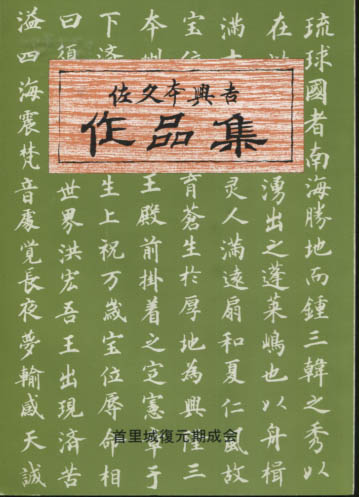 佐久本興吉
作品集
琉球國者南海勝地而鍾三韓之秀以
在
湧出之蓬莱嶋也以舟楫
満十
灵人満遠扇和夏仁風故
宝位
育蒼生於厚地為興隆三
本州
王殿前掛着之定憲章于
下済
生上祝万歳宝位辱命相
曰須
世界洪宏吾王出現済苦
溢四海震梵音處覚長夜夢輸感天誠
首里城復元期成会